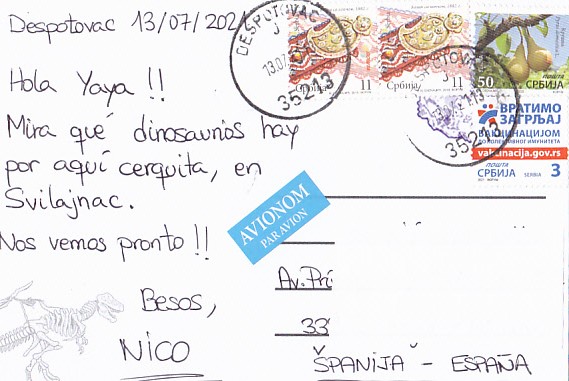 Despotovac 13/07/202
Hola Yaya !!
Mira qué dinosaurios hay
por aquí cerquita, en
Svilajnac.
Nos vemos pronto !!
Besos,
NICO
DESPOTOVAC
13.07.
35213
Србија 11
Србија 11
50
пошта
СРБИЈА
ВРАТИМО
ЗАГРЉАЈ
ВАКЦИНАЦИЈОМ
ДО КОЛЕКТИВНОГ ИМУНИТЕТА
vakcinacija.gov.rs
ПОШТА
СРБИЈА
SERBIA
3
AVIONOM
PAR AVION
Av. Prí
33
ŠPANIJA - ESPAÑA